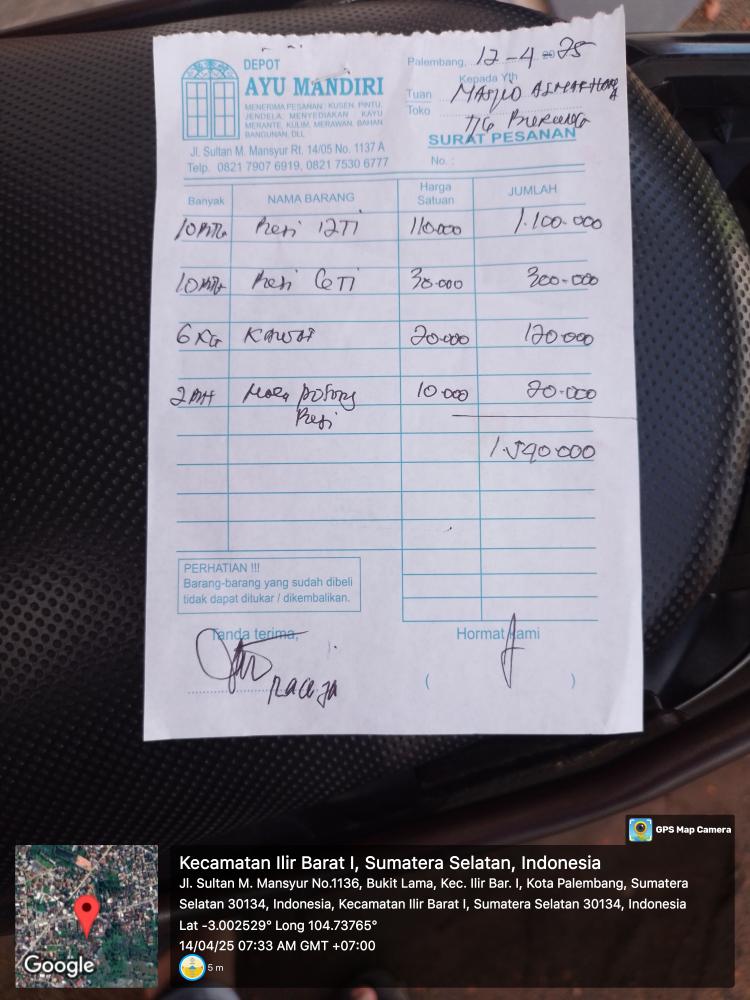 DEPOT
AYU MANDIRI
MENERIMA PESANAN : KUSEN, PINTU,
JENDELA, MENYEDIAKAN KAYU
MERANTE, KULIM, MERAWAN, BAHAN
BANGUNAN, DLL
Jl. Sultan M. Mansyur Rt. 14/05 No. 1137 A
Telp. 0821 7907 6919, 0821 7530 6777
Palembang, 12-4-2025
Kepada Yth
Tuan
Toko
MASJID
SURAT PESANAN
No. :
Banyak NAMA BARANG Harga Satuan JUMLAH
10 Besi 12 110.000 1.100.000
10 Besi 30.000 300.000
6 KG KAWAT 20.000 120.000
2 potong 10.000 20.000
Besi
1.540.000
PERHATIAN !!!
Barang-barang yang sudah dibeli
tidak dapat ditukar / dikembalikan.
Tanda terima, Hormat kami
( )
GPS Map Camera
Kecamatan Ilir Barat I, Sumatera Selatan, Indonesia
Jl. Sultan M. Mansyur No.1136, Bukit Lama, Kec. Ilir Bar. I, Kota Palembang, Sumatera
Selatan 30134, Indonesia, Kecamatan Ilir Barat I, Sumatera Selatan 30134, Indonesia
Lat -3.002529° Long 104.73765°
14/04/25 07:33 AM GMT +07:00
5 m
Google